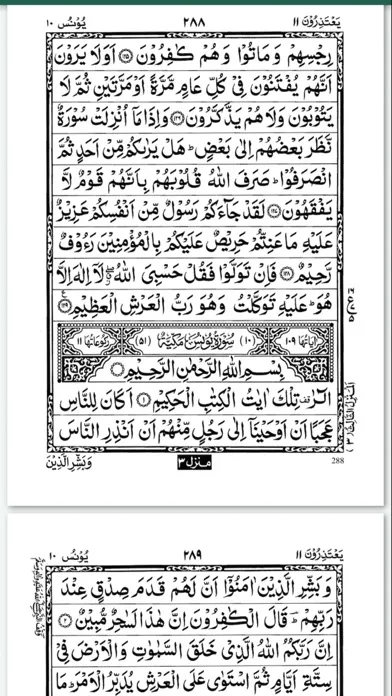 يَعْتَذِرُوْنَ ١١ ٢٨٨ يُوْنُس ١٠
رِجْسِهِمْ وَمَاتُوْا وَهُمْ كٰفِرُوْنَ ﴿١٢٥﴾ اَوَلَا يَرَوْنَ
اَنَّهُمْ يُفْتَنُوْنَ فِيْ كُلِّ عَامٍ مَّرَّةً اَوْ مَرَّتَيْنِ ثُمَّ لَا
يَتُوْبُوْنَ وَلَا هُمْ يَذَّكَّرُوْنَ ﴿١٢٦﴾ وَاِذَا مَآ اُنْزِلَتْ سُوْرَةٌ
نَّظَرَ بَعْضُهُمْ اِلٰى بَعْضٍ ؕ هَلْ يَرٰىكُمْ مِّنْ اَحَدٍ ثُمَّ
انْصَرَفُوْا ؕ صَرَفَ اللّٰهُ قُلُوْبَهُمْ بِاَنَّهُمْ قَوْمٌ لَّا
يَفْقَهُوْنَ ﴿١٢٧﴾ لَقَدْ جَآءَكُمْ رَسُوْلٌ مِّنْ اَنْفُسِكُمْ عَزِيْزٌ
عَلَيْهِ مَا عَنِتُّمْ حَرِيْصٌ عَلَيْكُمْ بِالْمُؤْمِنِيْنَ رَءُوْفٌ
رَّحِيْمٌ ﴿١٢٨﴾ فَاِنْ تَوَلَّوْا فَقُلْ حَسْبِيَ اللّٰهُ لَآ اِلٰهَ اِلَّا
هُوَ ؕ عَلَيْهِ تَوَكَّلْتُ وَهُوَ رَبُّ الْعَرْشِ الْعَظِيْمِ ﴿١٢٩﴾
اٰيَاتُهَا ١٠٩ (١٠) سُوْرَةُ يُوْنُسَ مَكِّيَّةٌ (٥١) رُكُوْعَاتُهَا ١١
بِسْمِ اللّٰهِ الرَّحْمٰنِ الرَّحِيْمِ
الٓرٰ تِلْكَ اٰيٰتُ الْكِتٰبِ الْحَكِيْمِ ﴿١﴾ اَكَانَ لِلنَّاسِ
عَجَبًا اَنْ اَوْحَيْنَآ اِلٰى رَجُلٍ مِّنْهُمْ اَنْ اَنْذِرِ النَّاسَ
وَبَشِّرِ الَّذِيْنَ
منزل ٣
288
يَعْتَذِرُوْنَ ١١ ٢٨٩ يُوْنُس ١٠
وَبَشِّرِ الَّذِيْنَ اٰمَنُوْٓا اَنَّ لَهُمْ قَدَمَ صِدْقٍ عِنْدَ
رَبِّهِمْ ؕ قَالَ الْكٰفِرُوْنَ اِنَّ هٰذَا لَسٰحِرٌ مُّبِيْنٌ ﴿٢﴾
اِنَّ رَبَّكُمُ اللّٰهُ الَّذِيْ خَلَقَ السَّمٰوٰتِ وَالْاَرْضَ فِيْ
سِتَّةِ اَيَّامٍ ثُمَّ اسْتَوٰى عَلَى الْعَرْشِ يُدَبِّرُ الْاَمْرَ ؕ مَا